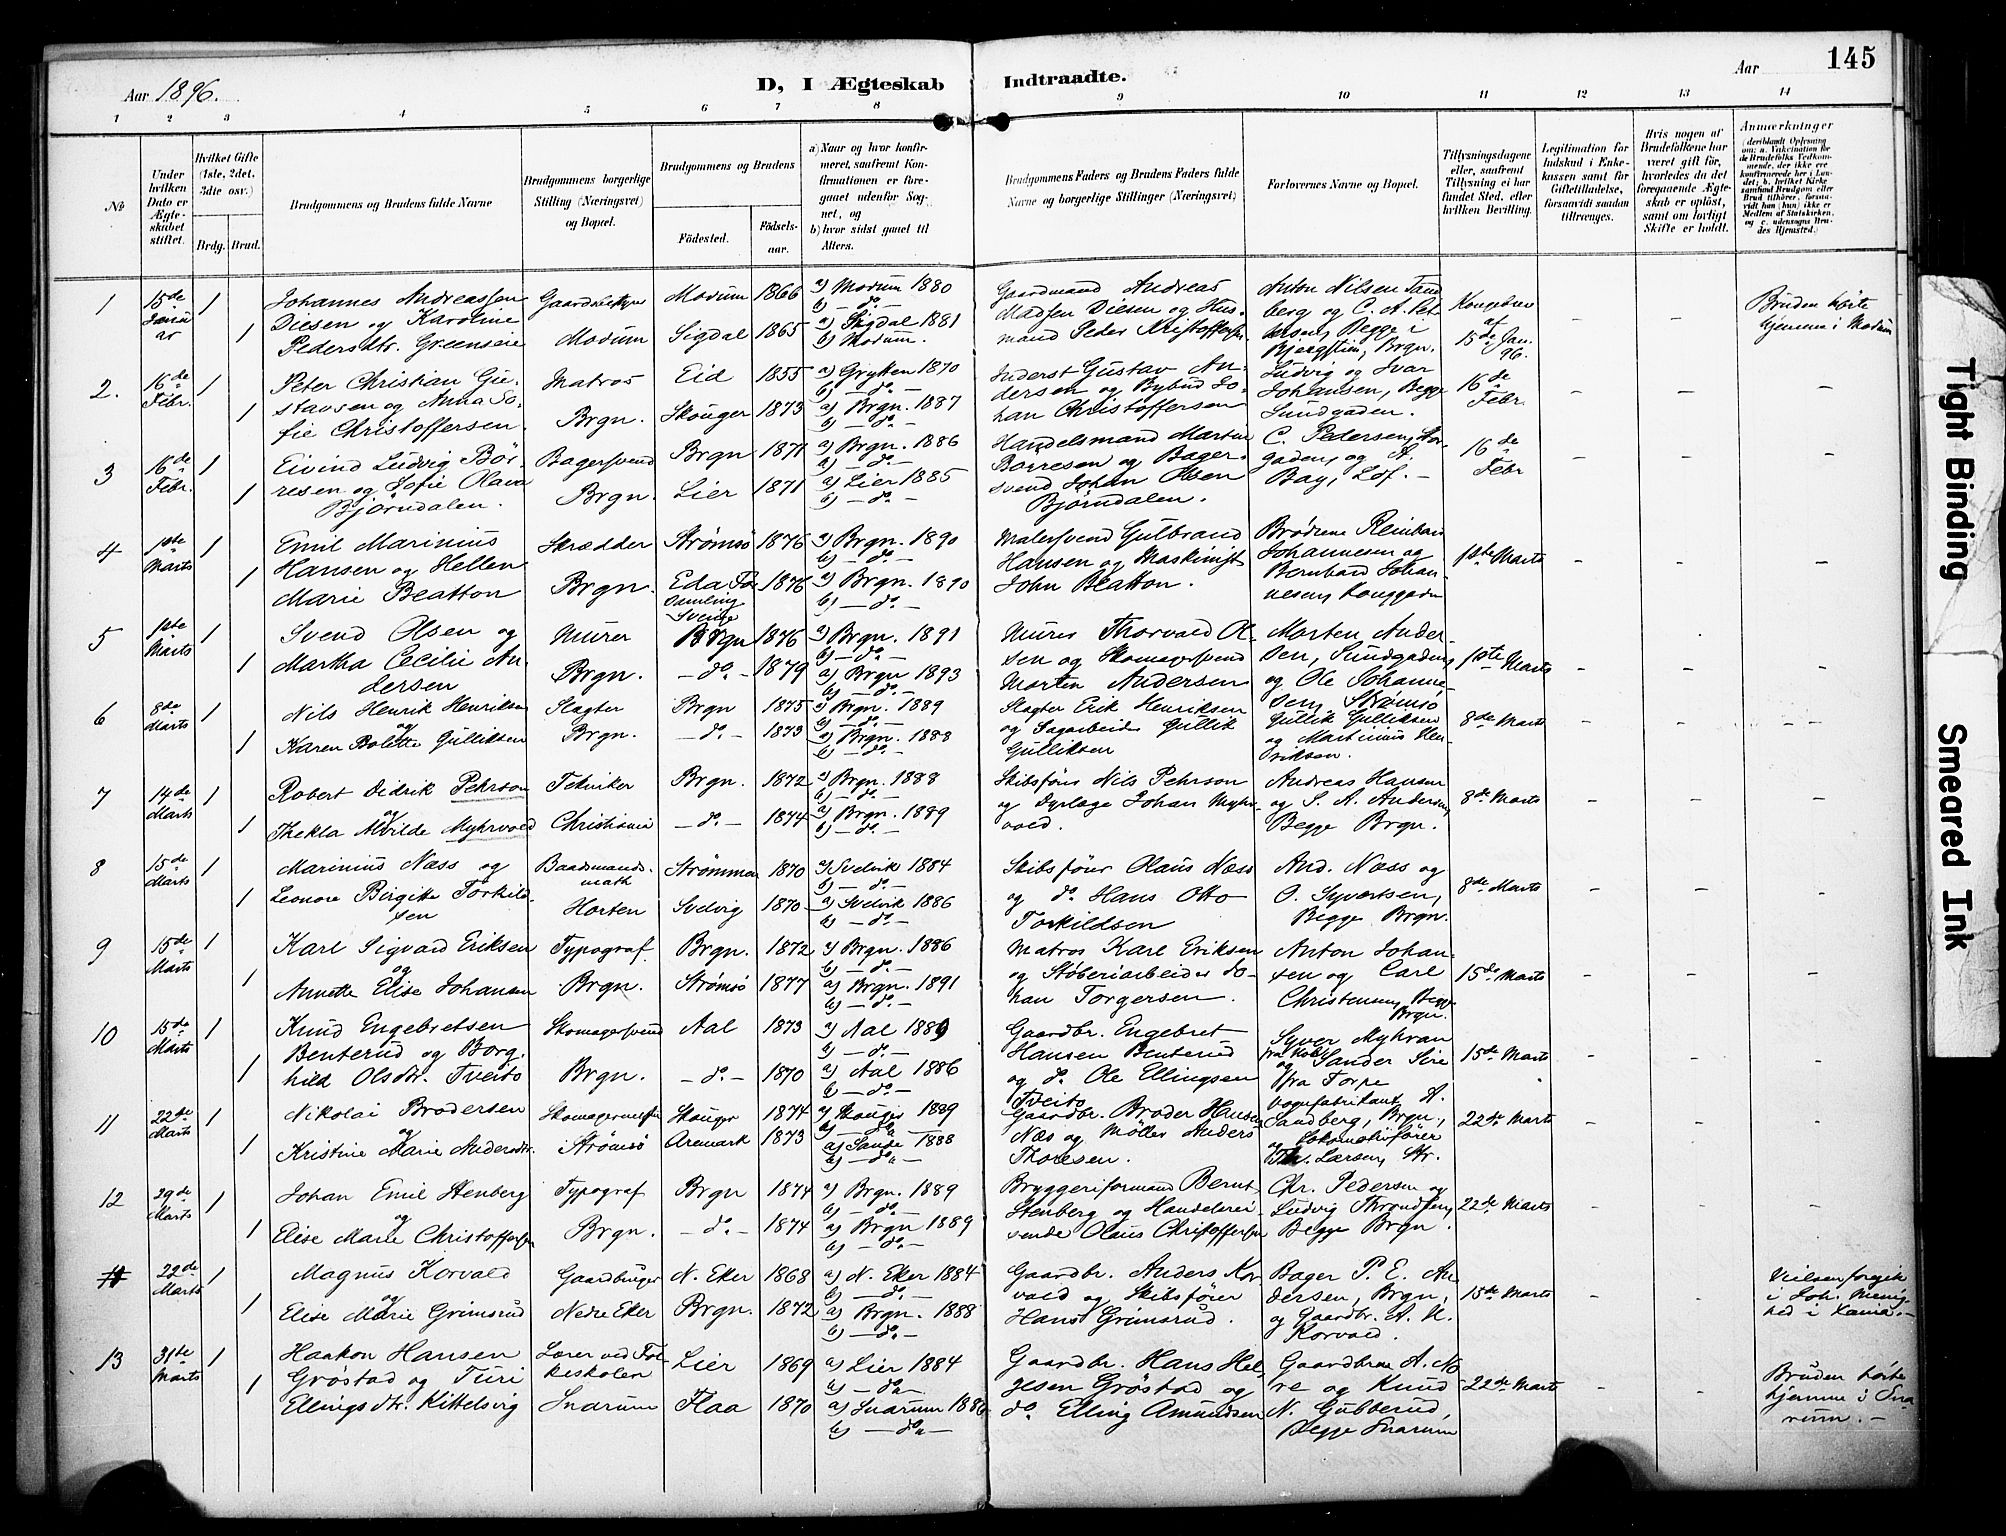 145
Aar 1896.
D, I Ægteskab Indtraadte.
Aar
1 2 3 4 5 6 7 8 9 10 11 12 13 14
№
Under hvilken Dato er Ægteskabet stiftet.
Hvilket Gifte (1ste, 2det, 3die osv.)
Brdg. Brud.
Brudgommens og Brudens fulde Navne
Brudgommens borgerlige Stilling (Næringsvei) og Bopæl.
Brudgommens og Brudens
Födested.
Födselsaar.
a) Naar og hvor konfirmeret, saafremt Konfirmationen er foregaaet udenfor Sognet, og
b) hvor sidst gaaet til Alters.
Brudgommens Faders og Brudens Faders fulde Navne og borgerlige Stillinger (Næringsvei)
Forlovernes Navne og Bopæl.
Tillysningsdagene eller, saafremt Tillysning ei har fundet Sted, efter hvilken Bevilling.
Legitimation for Indskud i Enkekassen samt for Giftetilladelse, forsaavidt saadan tiltrænges.
Hvis nogen af Brudefolkene har været gift för, hvorledes da det foregaaende Ægteskab er oplöst, samt om lovligt Skifte er holdt.
Anmærkninger
1 15de Januar 1 1
Johannes Andreassen Diesen og Karoline Pedersdtr. Greenseie
Modum
Modum 1866
Sigdal 1865
a) Modum 1880 b) - do -
a) Sigdal 1881 b) Modum.
Gaardmand Andreas Madsen Diesen og Husmand Peder Kristoffersen
Anton Nilsen Sandberg og C. A. Petersen, Begge i Bjergstien, Brgn.
Kongebrev af 15de Jan. 96.
Bruden hørte hjemme i Modum
2. 16de Febr. 1 1
Peter Christian Gustavsen og Anna Sofie Christoffersen.
Matros Brgn.
Eid 1855
Skouger 1873
a) Grytten 1870 b) - do -
a) Brgn. 1887 b) - do -
Inderst Gustav Andersen og Bybud Johan Christoffersen
Ludvig og Ivar Johansen, Begge Sundgaden.
16de Febr.
3 16de Febr. 1 1
Eivind Ludvig Börresen og Sofie Olava Bjørndalen.
Bagersvend Brgn.
Brgn 1871
Lier 1871
a) Brgn. 1886 b) - do -
a) Lier 1885 b) - do -
Handelsmand Martin Børresen og Bagersvend Johan Olsen Bjørndalen.
C. Pedersen, Storgaden, og A. Bay, Lof. -
16de Febr
4 1ste Marts 1 1
Emil Marinius Hansen og Hellen Marie Beatton
Skrædder Brgn.
Strømsø 1876
Eda Forsamling Sverige 1876
a) Brgn. 1890 b) - do -
a) Brgn. 1890 b) - do -
Malersvend Gulbrand Hansen og Maskinist John Beatton.
Brødrene Reinhard Johannesen og Bernhard Johannesen, Langgaden
1ste Marts
5 1ste Marts 1 1
Svend Olsen og Martha Cecilie Andersen
Murer Brgn.
Brgn 1876
- do - 1879
a) Brgn. 1891 b) - do -
a) Brgn 1893 b) - do -
Murer Thorvald Olsen og Skomagersvend Morten Andersen
Morten Andersen, Sundgaden, og Ole Johannesen, Strømsø
1ste Marts
6 8de Marts 1 1
Nils Henrik Henriksen og Karen Bolette Gulliksen
Slagter Brgn.
Brgn 1875
- do - 1873
a) Brgn. 1889 b) - do -
a) Brgn. 1888 b) - do -
Slagter Erik Henriksen og Sagarbeider Gullik Gulliksen
Gullik Gulliksen og Martinius Henriksen.
8de Marts
7 14de Marts 1 1
Robert Didrik Pehrson og Thekla Alvilde Myhrvold
Tekniker Christiania
Brgn. 1872
- do - 1874
a) Brgn. 1888 b) - do -
a) Brgn. 1889 b) - do -
Skibsfører Nils Pehrson og Dyrlæge Johan Myhrvold.
Andreas Hansen og S. A. Andersen, Begge Brgn.
8de Marts
8 15de Marts 1 1
Marinius Næss og Leonore Birgitte Torkildsen
Baadsmandsmath Horten
Strømmen 1870
Svelvig 1870
a) Svelvik 1884 b) - do -
a) Svelvik 1886 b) - do -
Skibsfører Olaus Næss og do Hans Otto Torkildsen
And. Næss og O. Syvertsen, Begge Brgn.
8de Marts
9 15de Marts 1 1
Karl Sigvard Eriksen og Annette Elise Johansen
Typograf Brgn.
Brgn. 1872
Strømsø 1877
a) Brgn. 1886 b) - do -
a) Brgn. 1891 b) - do -
Matros Karl Eriksen og Støberiarbeider Johan Torgersen.
Anton Johansen og Carl Christensen, Begge Brgn.
15de Marts
10 15de Marts 1 1
Knud Engebretsen Benterud og Borghild Olsdtr. Tveito
Skomagersvend Brgn.
Aal 1873
- do - 1870
a) Aal 1889 b) - do -
a) Aal 1886 b) - do -
Gaardbr. Engebret Hansen Benterud og do Ole Ellingsen Tveito
Syver Myhran fra Hol og Sander Sire fra Torpe
15de Marts
11 22de Marts 1 1
Nikolai Brodersen og Kristine Marie Andersdtr.
Skomagermester i Strømsø
Skouger 1874
Aremark 1873
a) Skouger 1889 b) - do -
a) Sande 1888 b) - do -
Gaardbr. Broder Hansen Næs og Møller Anders Thoresen.
Vognfabrikant A. Sandberg, Brgn., og Lokomotivfører Th. Larsen, Str.
22de Marts
12 29de Marts 1 1
Johan Emil Stenberg og Elise Marie Christoffersen
Typograf Brgn.
Brgn 1874
- do - 1874
a) Brgn. 1889 b) - do -
a) Brgn 1889 b) - do -
Bryggeriformand Bernt Stenberg og Handelsreisende Olaus Christoffersen
Chr. Pedersen og Ludvig Throndsen, Begge Brgn.
22de Marts
29de Marts 1 1
Magnus Korvald og Elise Marie Grimsrud
Gaardbruger Nedre Eker
N. Eker 1868
Brgn. 1872
a) N. Eker 1884 b) - do -
a) Brgn. 1888 b) - do -
Gaardbr. Anders Korvald og Skibsfører Hans Grimsrud.
Bager P. E. Andersen, Brgn., og Gaardbr. A. K. Korvald.
15de Marts
Vielsen foregik i Joh. Menighed i Xania. -
13 31te Marts 1 1
Haakon Hansen Grøstad og Turi Ellingsdtr. Kittelsvig
Lærer ved Folkeskolen Snarum
Lier 1869
Flaa 1870
a) Lier 1884 b) - do -
a) Snarum 1886 b) - do -
Gaardbr. Hans Helgesen Grøstad og do. Elling Amundsen
Gaardbrne A. Nore og Knud N. Gubberud, Begge Snarum
22de Marts
Bruden hørte hjemme i Snarum. -
Tight Binding
Smeared Ink